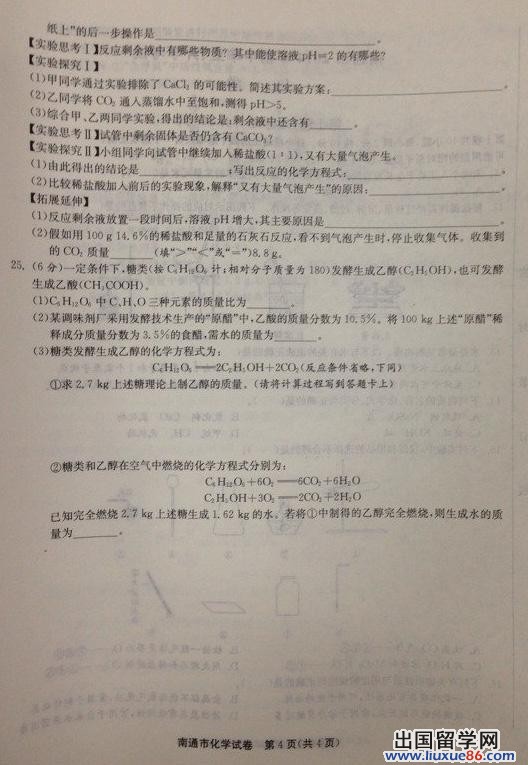 纸上”的后一步操作是
【实验思考Ⅰ】反应剩余液中有哪些物质？其中能使溶液pH=2的有哪些？
【实验探究Ⅰ】
(1)甲同学通过实验排除了CaCl₂的可能性。简述其实验方案：。
(2)乙同学将CO₂通入蒸馏水中至饱和，测得pH>5。
(3)综合甲、乙两同学实验，得出的结论是：剩余液中还含有。
【实验思考Ⅱ】试管中剩余固体是否仍含有CaCO₃？
【实验探究Ⅱ】小组同学向试管中继续加入稀盐酸(1∶1)，又有大量气泡产生。
(1)由此得出的结论是；写出反应的化学方程式：。
(2)比较稀盐酸加入前后的实验现象，解释“又有大量气泡产生”的原因：。
【拓展延伸】
(1)反应剩余液放置一段时间后，溶液pH增大，其主要原因是。
(2)假如用100 g 14.6%的稀盐酸和足量的石灰石反应，看不到气泡产生时，停止收集气体。收集到
的CO₂质量(填“>”“<”或“=”)8.8 g。
25.(6分)一定条件下，糖类(按C₆H₁₂O₆计；相对分子质量为180)发酵生成乙醇(C₂H₅OH)，也可发酵
生成乙酸(CH₃COOH)。
(1)C₆H₁₂O₆中C、H、O三种元素的质量比为。
(2)某调味剂厂采用发酵技术生产的“原醋”中，乙酸的质量分数为10.5%。将100 kg上述“原醋”稀
释成分质量分数为3.5%的食醋，需水的质量为。
(3)糖类发酵生成乙醇的化学方程式为：
C₆H₁₂O₆══2C₂H₅OH+2CO₂(反应条件省略，下同)
①求2.7 kg上述糖理论上制乙醇的质量。(请将计算过程写到答题卡上)
②糖类和乙醇在空气中燃烧的化学方程式分别为：
C₆H₁₂O₆+6O₂══6CO₂+6H₂O
C₂H₅OH+3O₂══2CO₂+2H₂O
已知完全燃烧2.7 kg上述糖生成1.62 kg的水。若将①中制得的乙醇完全燃烧，则生成水的质
量为。
南通市化学试卷 第4页(共4页)
出国留学网
www.liuxue86.com